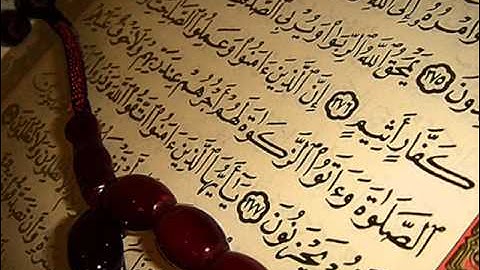 وَأَمْرُهُۥٓ إِلَى ٱللَّهِ
دُونَ ٢٧٥ يَمْحَقُ ٱللَّهُ ٱلرِّبَوٰا۟ وَيُرْبِى
كَفَّارٍ أَثِيمٍ ٢٧٦ إِنَّ ٱلَّذِينَ ءَامَنُوا۟ وَعَمِلُوا۟ ٱلصَّٰلِحَٰتِ
ٱلصَّلَوٰةَ وَءَاتَوُا۟ ٱلزَّكَوٰةَ لَهُمْ أَجْرُهُمْ عِندَ رَبِّهِمْ وَلَا خَوْفٌ
هُمْ يَحْزَنُونَ ٢٧٧ يَٰٓأَيُّهَا ٱلَّذِينَ ءَامَنُوا۟ ٱتَّقُوا۟ ٱللَّهَ وَذَرُوا۟